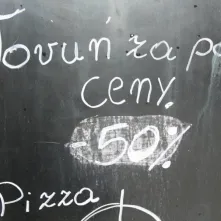 Toruń za po
ceny
-50%
Pizza